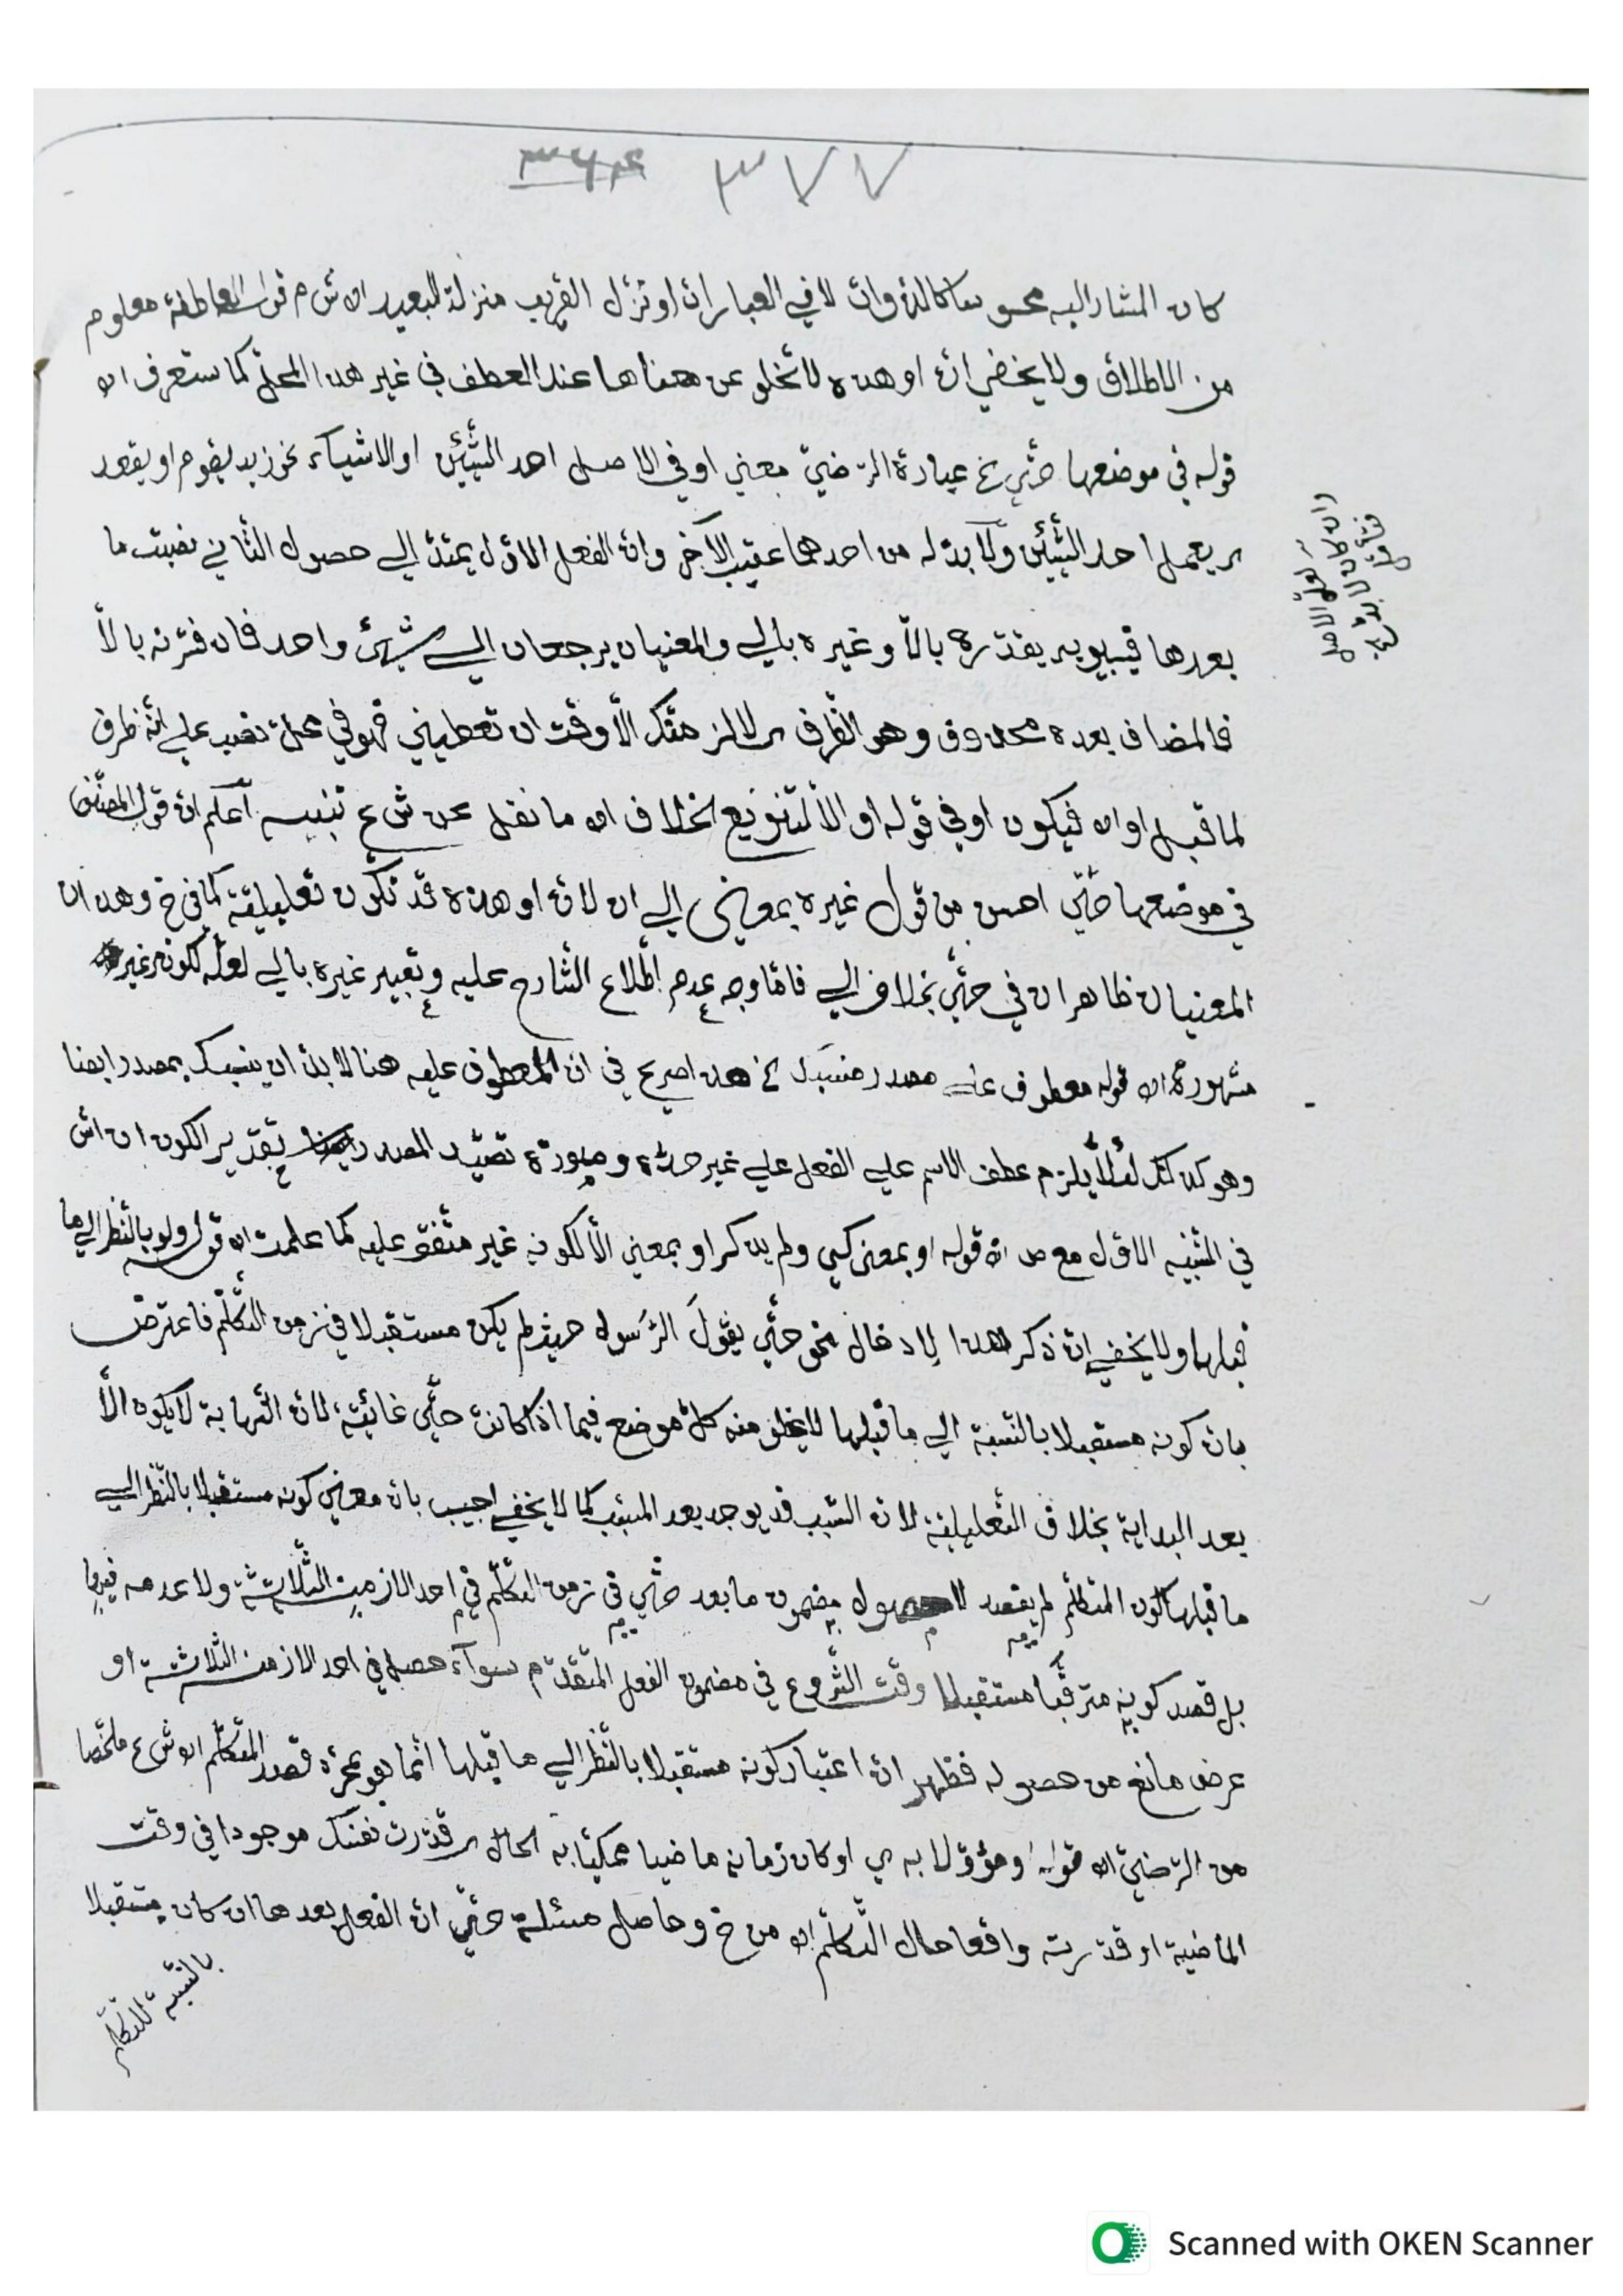 ٣٧٧ ٣٦٤
كان المشار اليه محسوسا كالذوات لا في العبارات او تنزل القريب منزلة البعيد اه ش م قوله العاطفة معلوم
من الاطلاق ولا يخفى ان او هذه لا تخلو عن معناها عند العطف في غير هذا المحل كما ستعرف اه
قوله في موضعها حتى خ عبارة الرضيّ معنى او في الاصل احد الشيئين او الاشياء نحو زيد يقوم او يقعد
اي يعمل احد الشيئين ولا بد له من احدهما عقيب الآخر وان الفعل الاول يمتد الى حصول الثاني نصبت ما
بعدها فسيبويه يقدره بالاّ وغيره بالى والمعنيان يرجعان الى شيئ واحد فان فسرته بالاّ
فالمضاف بعده محذوف وهو الظرف اي لالزمنّك الاّ وقت ان تعطيني فهو في محل نصب على انه ظرف
لما قبل او اه فيكون او في قوله او الا للتنويع بخلاف اه ما نقل عن ش ع تنبيه أعلم ان قول المصنف
في موضعها حتى احسن من قول غيره بمعنى الى ان لان او هذه قد تكون تعليلية كما في خ وهذان
المعنيان ظاهران في حتى بخلاف الى فاما وجه عدم اطلاع الشارح عليه وتعبير غيره بالى لعله لكونه غير
مشهورة اه قوله معطوف على مصدر منسبك خ هذا صريح في ان المعطوف عليه هنا لا بد ان ينسبك بمصدر ايضا
وهو كذلك لئلا يلزم عطف الاسم على الفعل على غير حده وصورة تصيّد المصدر بتقدير الكون ان اش
في التنبيه الاول مع ص اه قوله او بمعنى كي ولم يذكر او بمعنى الاّ لكونه غير متفق عليه كما علمت اه قوله ولو بالنظر الى ما
قبلها ولا يخفى ان ذكر هذا لادخال نحو حتى يقولَ الرسول حيث لم يكن مستقبلا في زمن التكلم فاعترض
بان كونه مستقبلا بالنسبة الى ما قبلها لا يخلو منه كل موضع فيما اذا كانت حتى غائية لان النهاية لا يكون الاّ
بعد البداية بخلاف التعليلية لان السبب قد يوجد بعد المسبب كما لا يخفى اجيب بان معنى كونه مستقبلا بالنظر الى
ما قبلها كون المتكلم لم يقصد حصول مضمون ما بعد حتى في زمن التكلم في احد الازمنة الثلاثة ولا عدمه فيها
بل قصد كونه مترقبا مستقبلا وقت الشروع في مضمون الفعل المتقدم سواء حصل في احد الازمنة الثلاثة او
عرض مانع من حصوله فظهر ان اعتبار كونه مستقبلا بالنظر الى ما قبلها انما هو بمجرد قصد المتكلم اه ش ع ملخصا
من الرضيّ اه قوله ومؤولا به ي او كان زمانه ماضيا محكيا به الحال اي قدرت نفسك موجودا في وقت
الماضية او قدرته واقعا حال التكلم اه من خ وحاصل مسئلة حتى ان الفعل بعدها ان كان مستقبلا
بالنسبة للتكلم